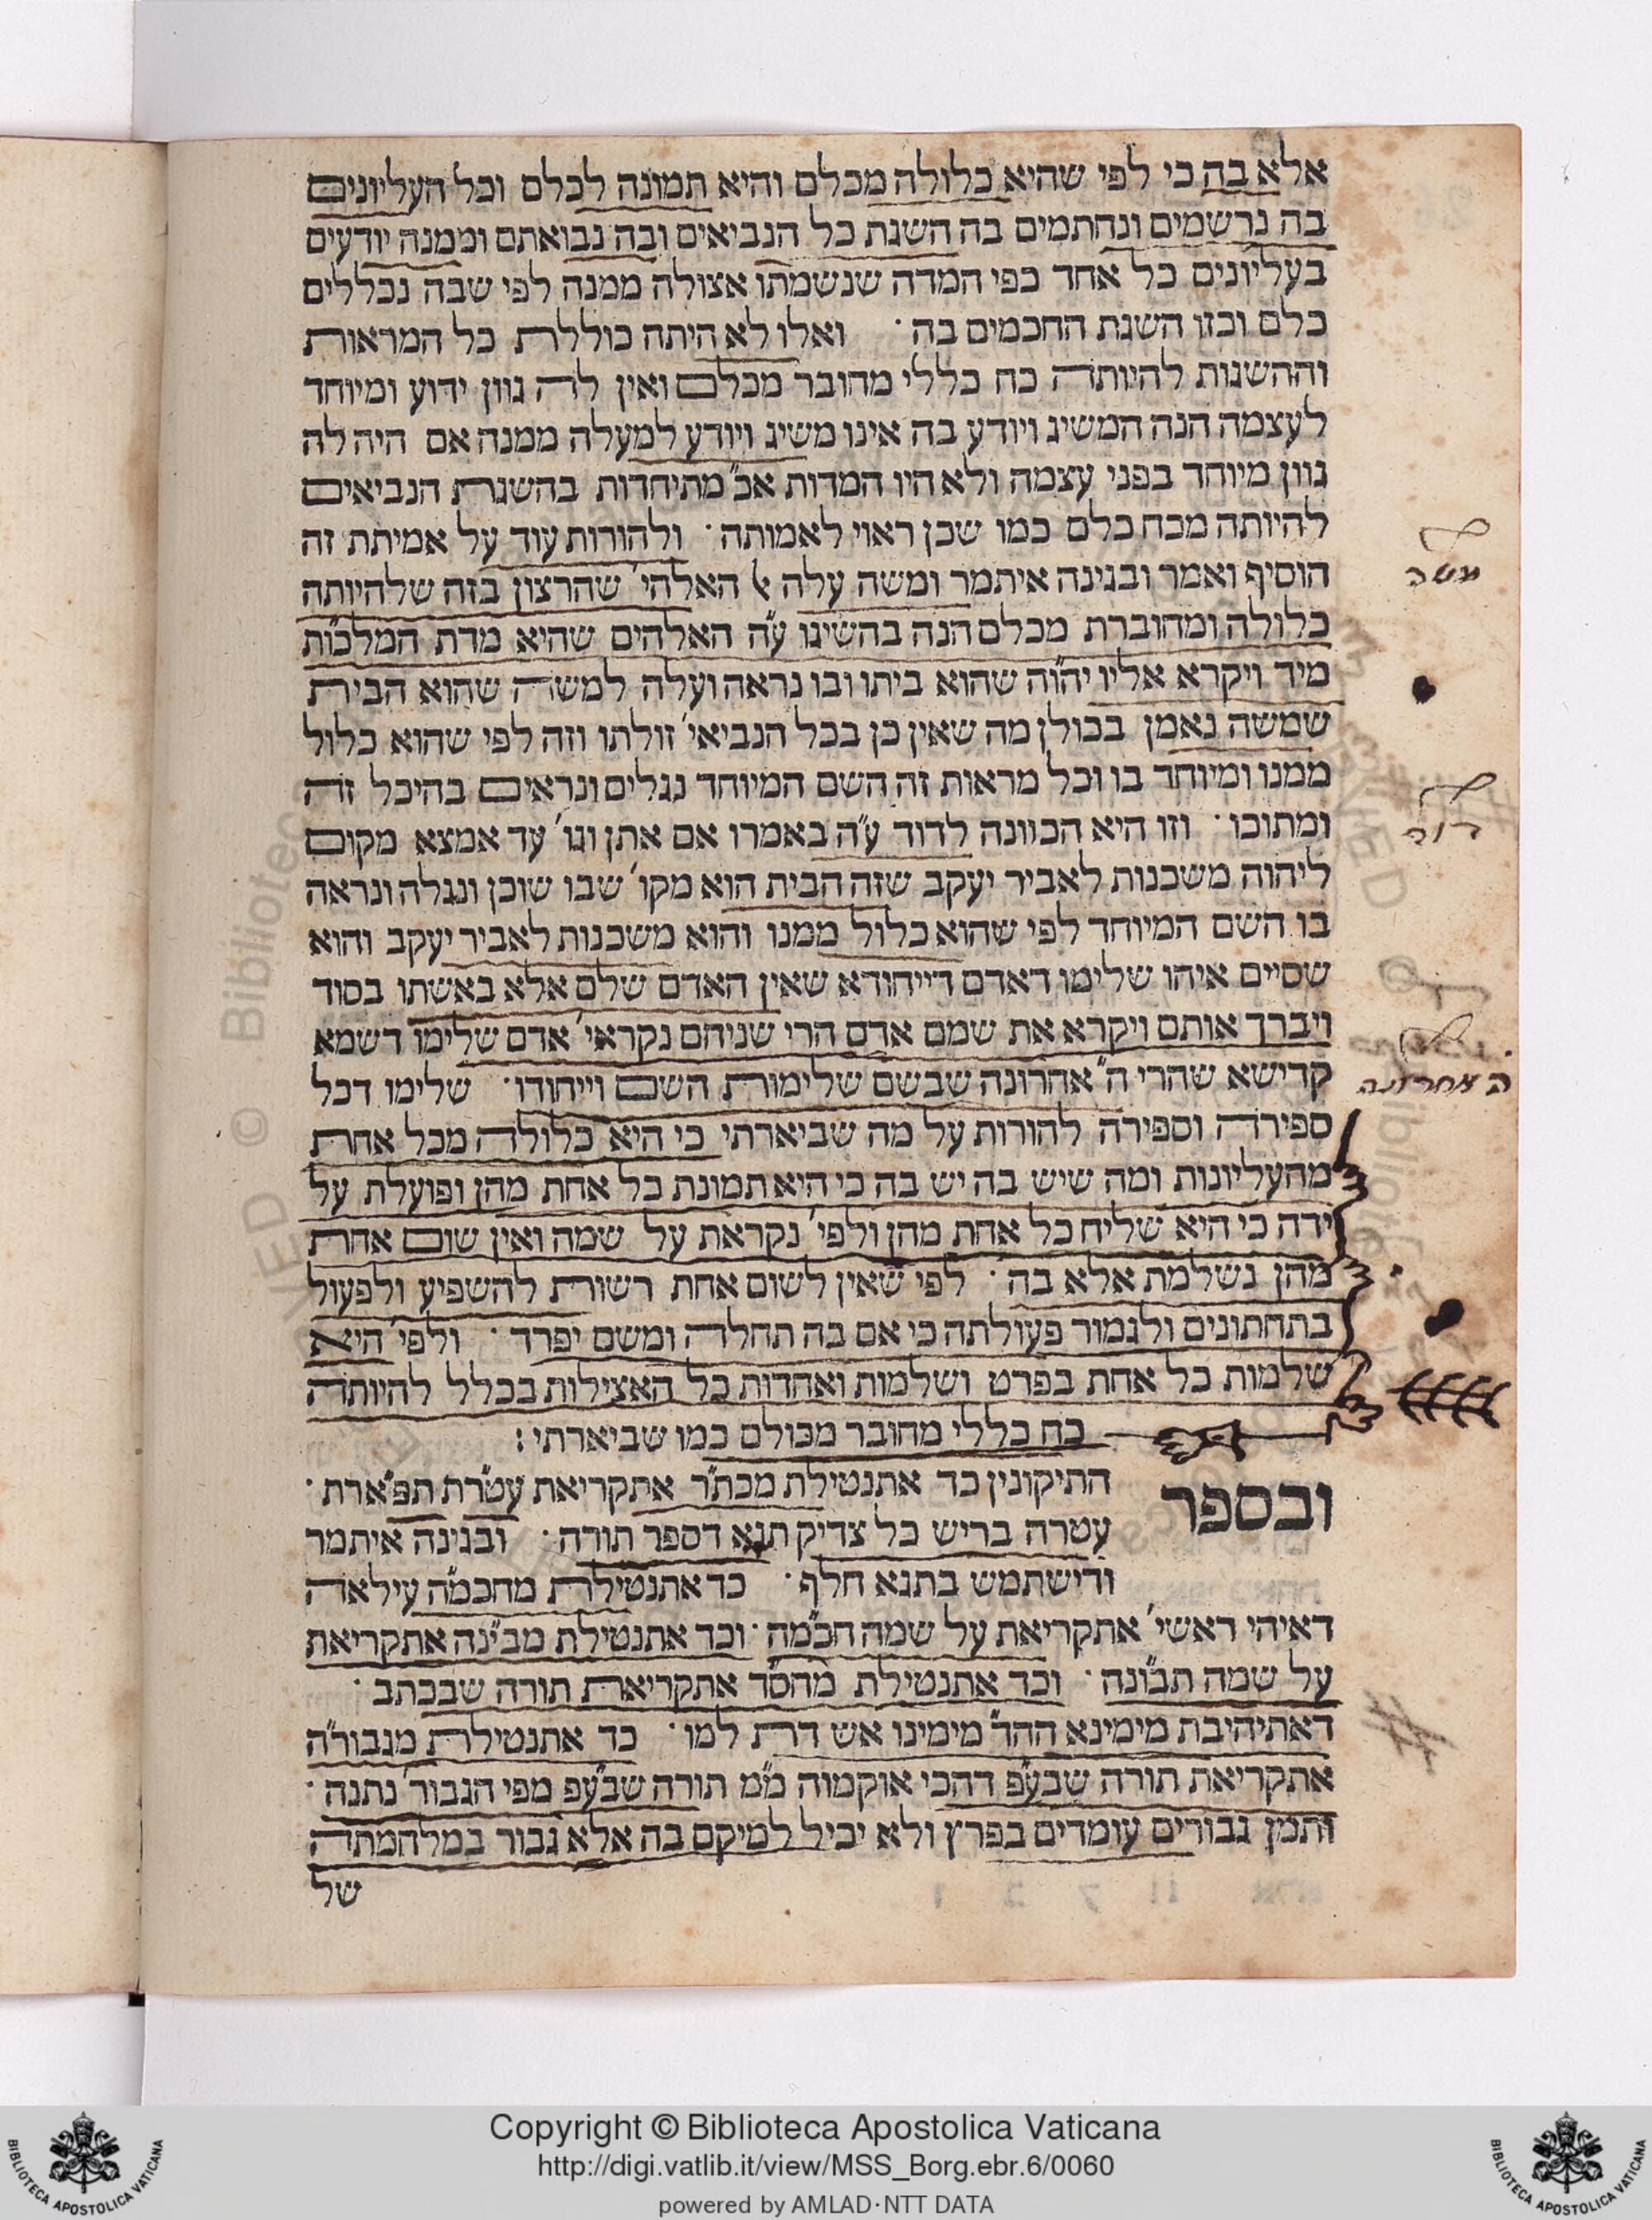 אלא בה כי לפי שהיא כלולה מכלם והיא תמונה לכלם וכל העליונים
בה נרשמים ונחתמים בה השגת כל הנביאים ובה נבואתם וממנה יודעים
בעליונים כל אחד כפי המדה שנשמתו אצולה ממנה לפי שבה נכללים
כלם וכזו השגת החכמים בה · ואלו לא היתה כוללת כל המראות
וההשגות להיותה כח כללי מחובר מכלם ואין לה גוון ידוע ומיוחד
לעצמה הנה המשיג ויודע בה אינו משיג ויודע למעלה ממנה אם היה לה
גוון מיוחד בפני עצמה ולא היו המדות אכ״ מתיחדות בהשגת הנביאים
להיותה מכח כלם כמו שכן ראוי לאמותה · ולהורות עוד על אמיתת זה
הוסיף ואמר ובגינה איתמר ומשה עלה אל האלהי׳ שהרצון בזה שלהיותה
כלולה ומחוברת מכלם הנה בהשיגו ע״ה האלהים שהיא מדת המלכות
מיד ויקרא אליו יהוה שהוא ביתו ובו נראה ועלה למשה שהוא הבית
שמשה נאמן בכולן מה שאין כן בכל הנביאי׳ זולתו וזה לפי שהוא כלול
ממנו ומיוחד בו וכל מראות זה השם המיוחד נגלים ונראים בהיכל זה
ומתוכו · וזו היא הכוונה לדוד ע״ה באמרו אם אתן וגו׳ עד אמצא מקום
ליהוה משכנות לאביר יעקב שזה הבית הוא מקו׳ שבו שוכן ונגלה ונראה
בו השם המיוחד לפי שהוא כלול ממנו והוא משכנות לאביר יעקב והוא
שסיים איהו שלימו דאדם דייהודא שאין האדם שלם אלא באשתו בסוד
ויברך אותם ויקרא את שמם אדם הרי שניהם נקראי׳ אדם שלימו דשמא
קדישא שהרי ה״ אחרונה שבשם שלימות השם וייחודו · שלימו דכל
ספירה וספירה להורות על מה שביארתי כי היא כלולה מכל אחת
מהעליונות ומה שיש בה יש בה כי היא תמונת כל אחת מהן ופועלת על
ידה כי היא שליח כל אחת מהן ולפי׳ נקראת על שמה ואין שום אחת
מהן נשלמת אלא בה · לפי שאין לשום אחת רשות להשפיע ולפעול
בתחתונים ולגמור פעולתה כי אם בה תחלה ומשם יפרד · ולפי׳ היא
שלמות כל אחת בפרט ושלמות ואחדות כל האצילות בכלל להיותה
כח כללי מחובר מכולם כמו שביארתי :
ובספר התיקונין כד אתנטילת מכת״ר אתקריאת עטרת תפ״ארת ·
עטרה בריש כל צדיק תגא דספר תורה · ובגינה איתמר
ודישתמש בתגא חלף · כד אתנטילת מחכמ״ה עילאה
דאיהי ראשי׳ אתקריאת על שמה חכ״מה · וכד אתנטילת מב״ינה אתקריאת
על שמה תבונה · וכד אתנטילת מחס״ד אתקריאת תורה שבכתב ·
דאתיהיבת מימינא ההד״ מימינו אש דת למו · כד אתנטילת מגבור״ה
אתקריאת תורה שבע״פ דהכי אוקמוה מ״מ תורה שבע״פ מפי הגבור׳ נתנה ·
ותמן גבורים עומדים בפרץ ולא יכיל למיקם בה אלא גבור במלחמתה
של
משה
דוד
ה אחרונה
Copyright © Biblioteca Apostolica Vaticana
http://digi.vatlib.it/view/MSS_Borg.ebr.6/0060
powered by AMLAD·NTT DATA
BIBLIOTECA APOSTOLICA VATICANA
BIBLIOTECA APOSTOLICA VATICANA